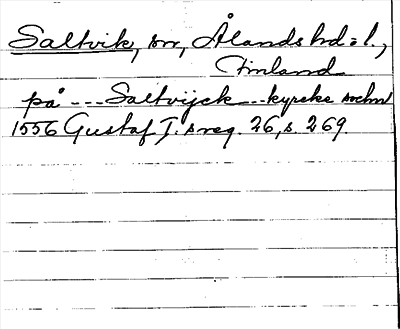 Saltvik, sn, Ålands hd o l.,
Finland
på --- Saltvijck --- kyrcke sochn
1556 Gustaf I:s reg. 26, s. 269